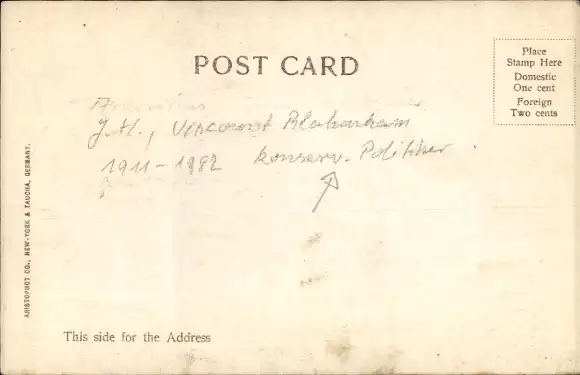 POST CARD
Place
Stamp Here
Domestic
One cent
Foreign
Two cents
J. H., Viscount Blakenham
1911-1982 konserv. Politiker
ARISTOPHOT CO., NEW-YORK & TAUCHA, GERMANY.
This side for the Address